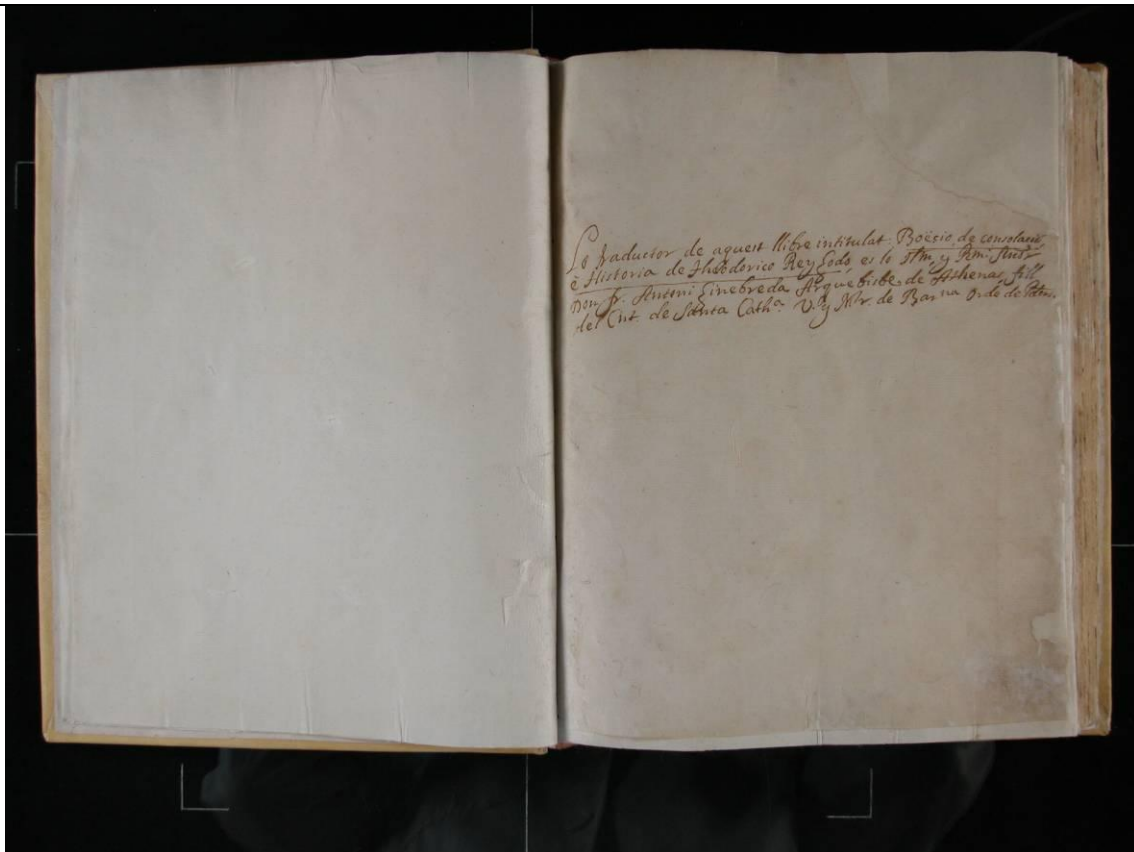 Lo traductor de aquest llibre intitulat: Boësio de consolació,
ë Historia de Theodorico Rey Godo es lo Ilm. y Rm. Snr
Don Fr. Antoni Ginebreda Arquebisbe de Athenas, fill
del Cnt de Santa Cathª V. y Mr. de Barna Orde de